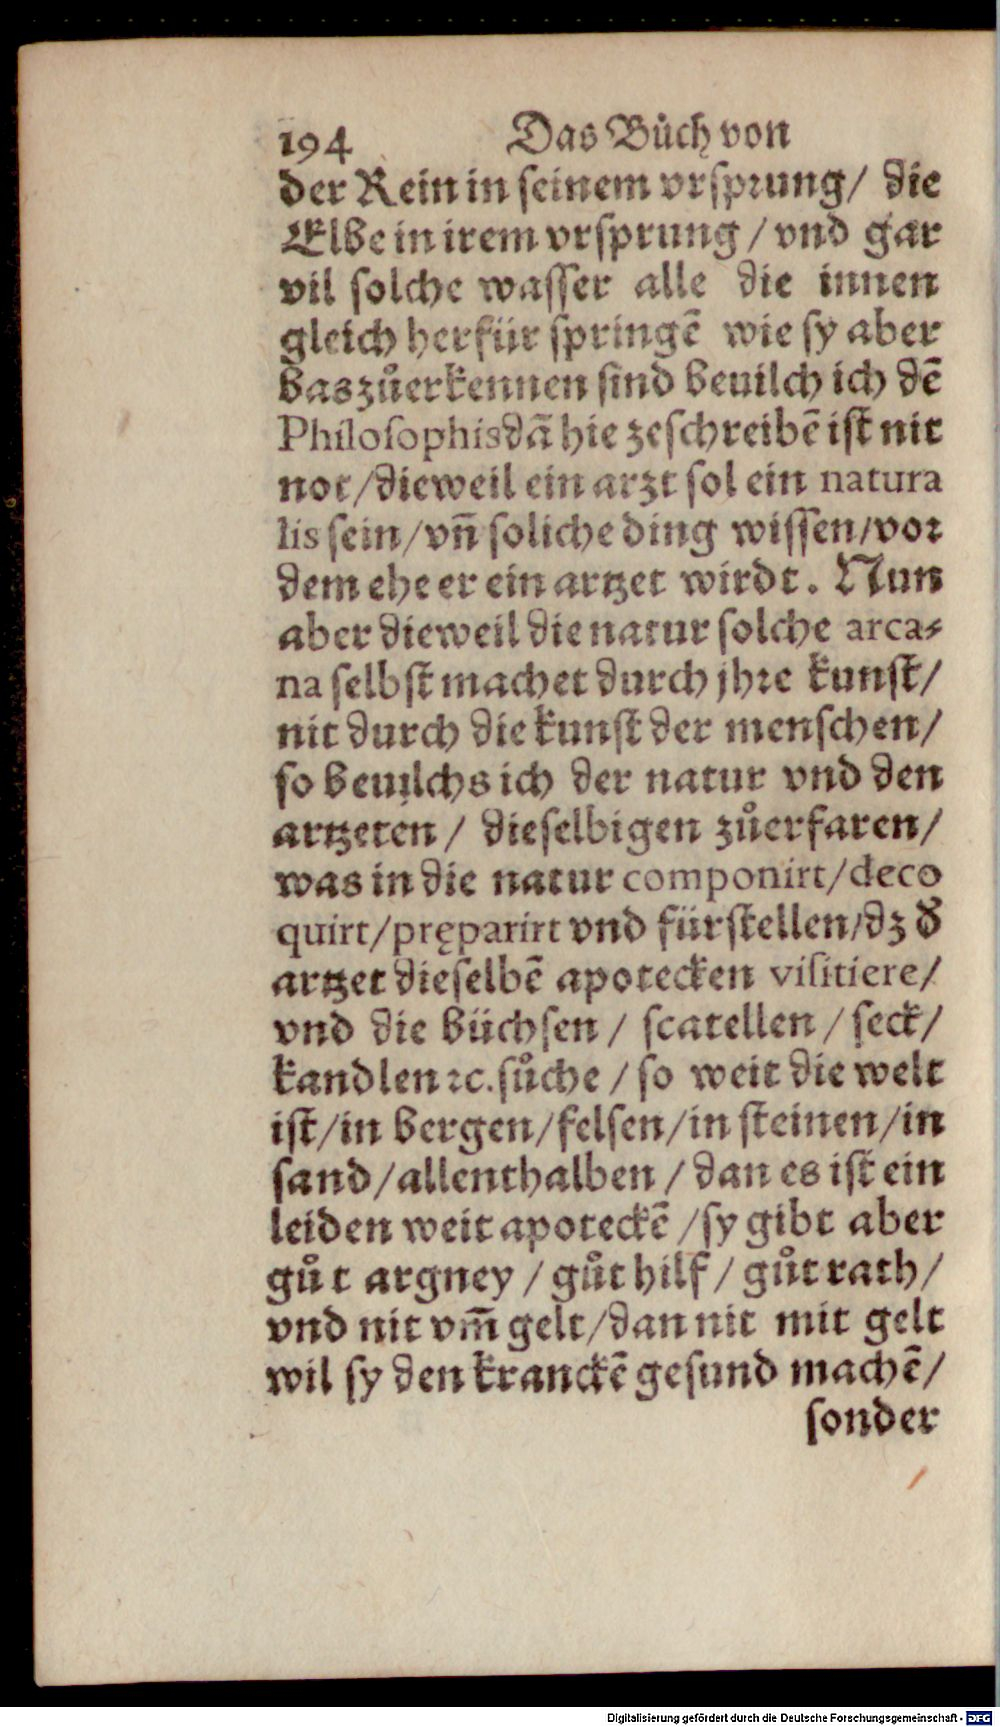 194 Das Bůch von
der Rein in seinem vrsprung/ die
Elbe in irem vrsprung/vnd gar
vil solche wasser alle die innen
gleich herfür springē wie sy aber
bas zůerkennen sind beuilch ich dē
Philosophis dā hie zeschreibē ist nit
not/dieweil ein arzt sol ein natura
lis sein/vn̄ soliche ding wissen/vor
dem ehe er ein artzet wirdt. Nun
aber dieweil die natur solche arca⸗
na selbst machet durch jhre kunst/
nit durch die kunst der menschen/
so beuilchs ich der natur vnd den
artzeten/ dieselbigen zůerfaren/
was in die natur componirt/deco
quirt/pręparirt vnd fürstellen/dz d̕
artzet dieselbē apotecken visitiere/
vnd die büchsen/ scatellen/seck/
kandlen ꝛc. sůche/so weit die welt
ist/in bergen/felsen/in steinen/in
sand/allenthalben/dan es ist ein
leiden weit apoteckē/sy gibt aber
gůt argney/gůt hilf/gůt rath/
vnd nit vm̄ gelt/dan nit mit gelt
wil sy den kranckē gesund machē/
sonder
Digitalisierung gefördert durch die Deutsche Forschungsgemeinschaft - DFG